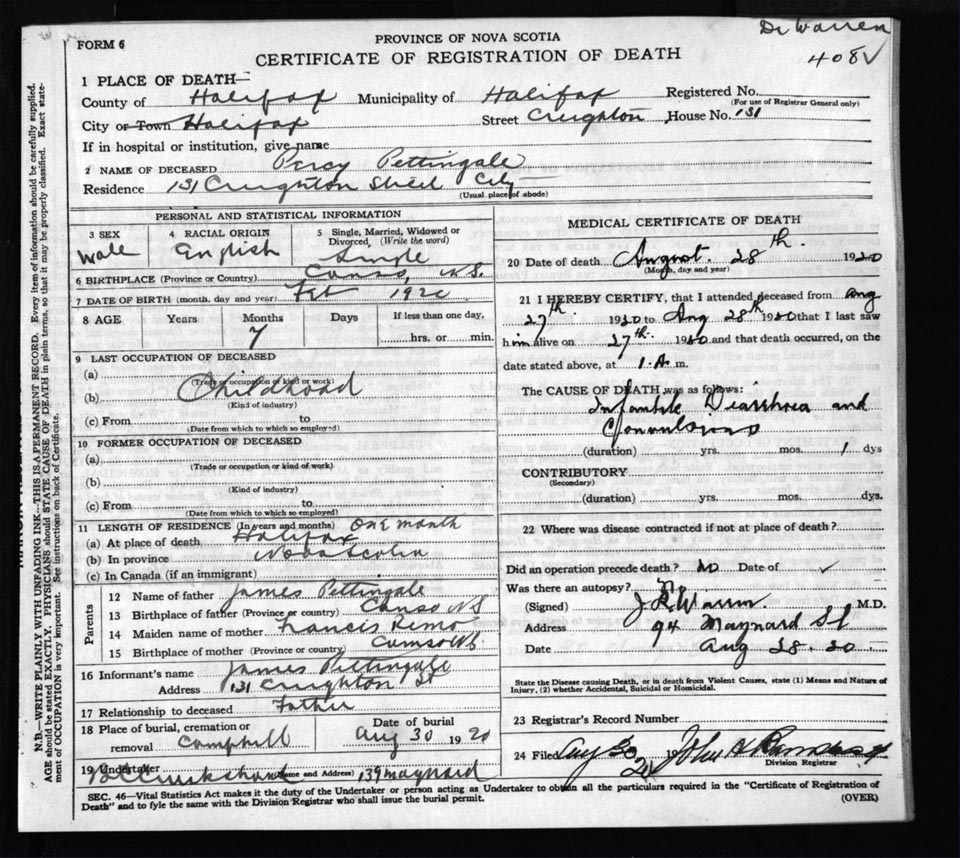 Dr Warren
408
FORM 6
PROVINCE OF NOVA SCOTIA
CERTIFICATE OF REGISTRATION OF DEATH
1 PLACE OF DEATH—
County of Halifax Municipality of Halifax Registered No.
(For use of Registrar General only)
City or Town Halifax Street Creighton House No. 131
If in hospital or institution, give name
2 NAME OF DECEASED Percy Pettingale
Residence 131 Creighton Street City
(Usual place of abode)
PERSONAL AND STATISTICAL INFORMATION
3 SEX Male
4 RACIAL ORIGIN English
5 Single, Married, Widowed or Divorced (Write the word) Single
6 BIRTHPLACE (Province or Country) Canso, N.S.
7 DATE OF BIRTH (month, day and year) Feb 1920
8 AGE Years Months 7 Days If less than one day, hrs. or min.
9 LAST OCCUPATION OF DECEASED
(a)
(Trade or occupation of kind or work)
(b) Childhood
(Kind of industry)
(c) From to
(Date from which to which so employed)
10 FORMER OCCUPATION OF DECEASED
(a)
(Trade or occupation or kind of work)
(b)
(Kind of industry)
(c) From to
(Date from which to which so employed)
11 LENGTH OF RESIDENCE (In years and months) one month
(a) At place of death Halifax
(b) In province Nova Scotia
(c) In Canada (if an immigrant)
Parents
12 Name of father James Pettingale
13 Birthplace of father (Province or country) Canso N S
14 Maiden name of mother Francis
15 Birthplace of mother (Province or country) Canso N.S.
16 Informant's name James Pettingale
Address 131 Creighton St
17 Relationship to deceased Father
18 Place of burial, cremation or removal Camphill
Date of burial Aug 30 1920
19 Undertaker (Name and Address) 139 Maynard
MEDICAL CERTIFICATE OF DEATH
20 Date of death August 28th 1920
(Month, day and year)
21 I HEREBY CERTIFY, that I attended deceased from Aug
27th 1920 to Aug 28th 1920 that I last saw
him alive on 27th 1920 and that death occurred, on the
date stated above, at 1 A.m.
The CAUSE OF DEATH was as follows:
Infantile Diarrhoea and
Convulsions
(duration) yrs. mos. 1 dys
CONTRIBUTORY
(Secondary)
(duration) yrs. mos. dys.
22 Where was disease contracted if not at place of death?
Did an operation precede death? no Date of
Was there an autopsy? No
(Signed) Warren M.D.
Address 94 Maynard St
Date Aug 28. 20
State the Disease causing Death, or in death from Violent Causes, state (1) Means and Nature of
Injury, (2) whether Accidental, Suicidal or Homicidal.
23 Registrar's Record Number
24 Filed Aug 30 19 John
Division Registrar
SEC. 46—Vital Statistics Act makes it the duty of the Undertaker or person acting as Undertaker to obtain all the particulars required in the "Certificate of Registration of
Death" and to fyle the same with the Division Registrar who shall issue the burial permit.
(OVER)
N.B.—WRITE PLAINLY WITH UNFADING INK—THIS IS A PERMANENT RECORD. Every item of information should be carefully supplied.
AGE should be stated EXACTLY. PHYSICIANS should STATE CAUSE OF DEATH in plain terms, so that it may be properly classified. Exact state-
ment of OCCUPATION is very important. See instructions on back of Certificate.